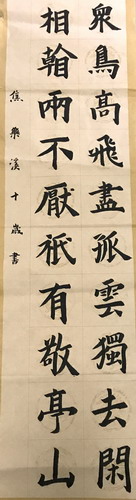 衆鳥高飛盡孤雲獨去閑
相兩不厭祇有敬亭山
焦樂溪十歲書